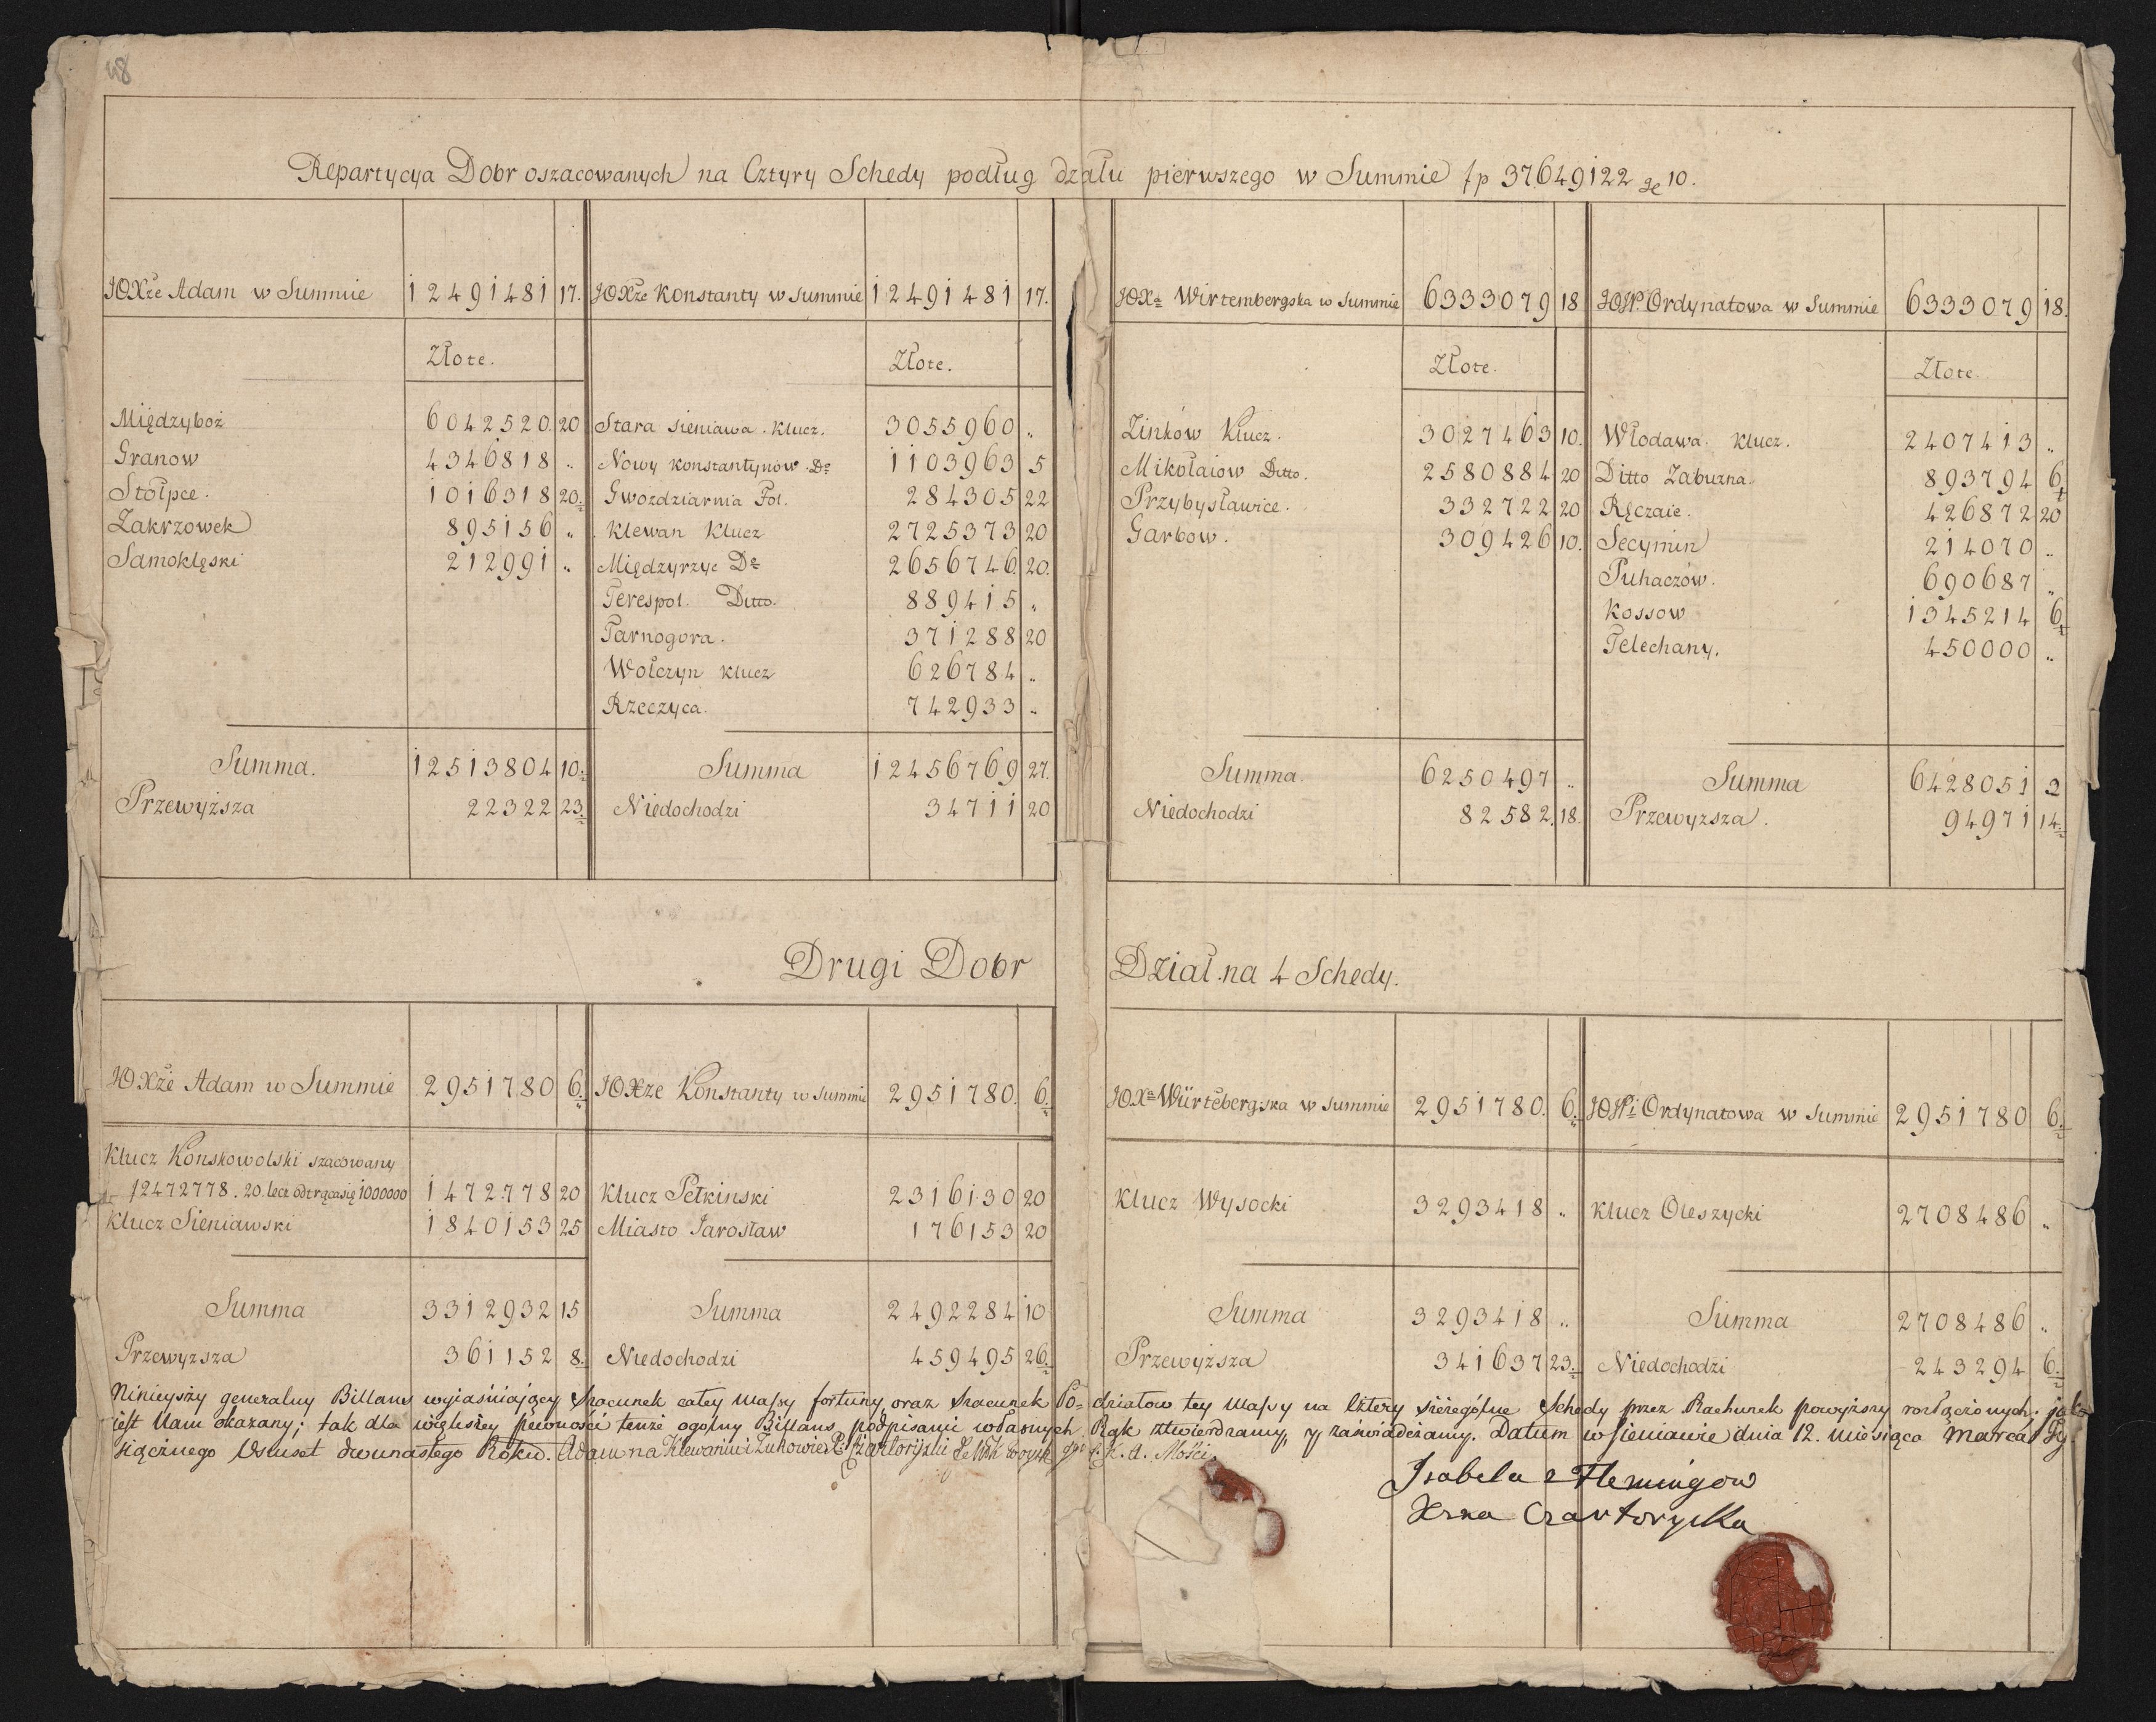 48
Repartycya Dobr oszacowanych na Cztyry Schedy podług działu pierwszego w Summie fp 37649122 ge 10.
JOXże Adam w Summie 12491481 17.
Złote.
Międzyboż 6042520. 20
Granow 4346818 „
Stołpce. 1016318 20.
Zakrzowek 895156 „
Samoklęski 212991 „
Summa. 12513804 10.
Przewyższa 22322 23.
JOXże Konstanty w Summie 12491481 17.
Złote.
Stara Sieniawa. Klucz. 3055960 „
Nowy Konstantynow. Do 1103963 5
Gwozdziarnia Fol. 284305 22
Klewan Klucz 2725373 20
Międzyrzyc Do 2656746 20.
Terespol. Ditto. 889415 „
Tarnogora. 371288 20
Wołczyn Klucz 626784 „
Rzeczyca. 742933 „
Summa 12456769 27.
Niedochodzi 34711 20
JOXa Wirtembergska w Summie 6333079 18
Złote.
Zinków Klucz. 3027463 10.
Mikołaiow Ditto. 2580884 20
Przybysławice. 332722 20
Garbow. 309426 10.
Summa. 6250497 „
Niedochodzi 82582. 18.
JOP. Ordynatowa w Summie 6333079 18.
Złote.
Włodawa. Klucz. 2407413 „
Ditto Zabużna. 893794 6
Ręczaie. 426872 20
Secymin 214070 „
Puhaczów. 690687 „
Kossow 1345214 6
Telechany. 450000 „
Summa 6428051 2
Przewyzsza. 94971 14.
Drugi Dobr Dział na 4 Schedy.
JOXże Adam w Summie 2951780 6.
Klucz Konskowolski szacowany
f 2472778. 20. lecz odtrąca się 1000000 1472778 20
Klucz Sieniawski 1840153 25
Summa 3312932 15
Przewyzsza 361152 8.
JOXze Konstanty w Summie 2951780. 6.
Klucz Pełkinski 2316130 20
Miasto Jarosław 176153 20
Summa 2492284 10
Niedochodzi 459495 26.
JOXa Würtebergska w Summie 2951780. 6.
Klucz Wysocki 3293418 „
Summa 3293418 „
Przewyższa 341637 23.
JOPi Ordynatowa w Summie 2951780 6.
Klucz Oleszycki 2708486 „
Summa 2708486 „
Niedochodzi 243294 6.
Ninieyszy generalny Billans wyjaśniający Szacunek całey Massy fortuny, oraz Szacunek Podziałow tey Massy na cztery szczególne Schedy przez Rachunek powyższy rozłączonych, jak
iest Nam okazany; tak dla większey pewności tenże ogolny Billans podpisami własnych Rąk ztwierdzamy, y zaświadczamy. Datum w Sieniawie dnia 12. Miesiąca Marca Ty-
siącznego Osmset dwunastego Roku. Adam na Klewaniu i Żukowie X. Czartoryski
Isabela z Flemingow
Xżna Czartoryska